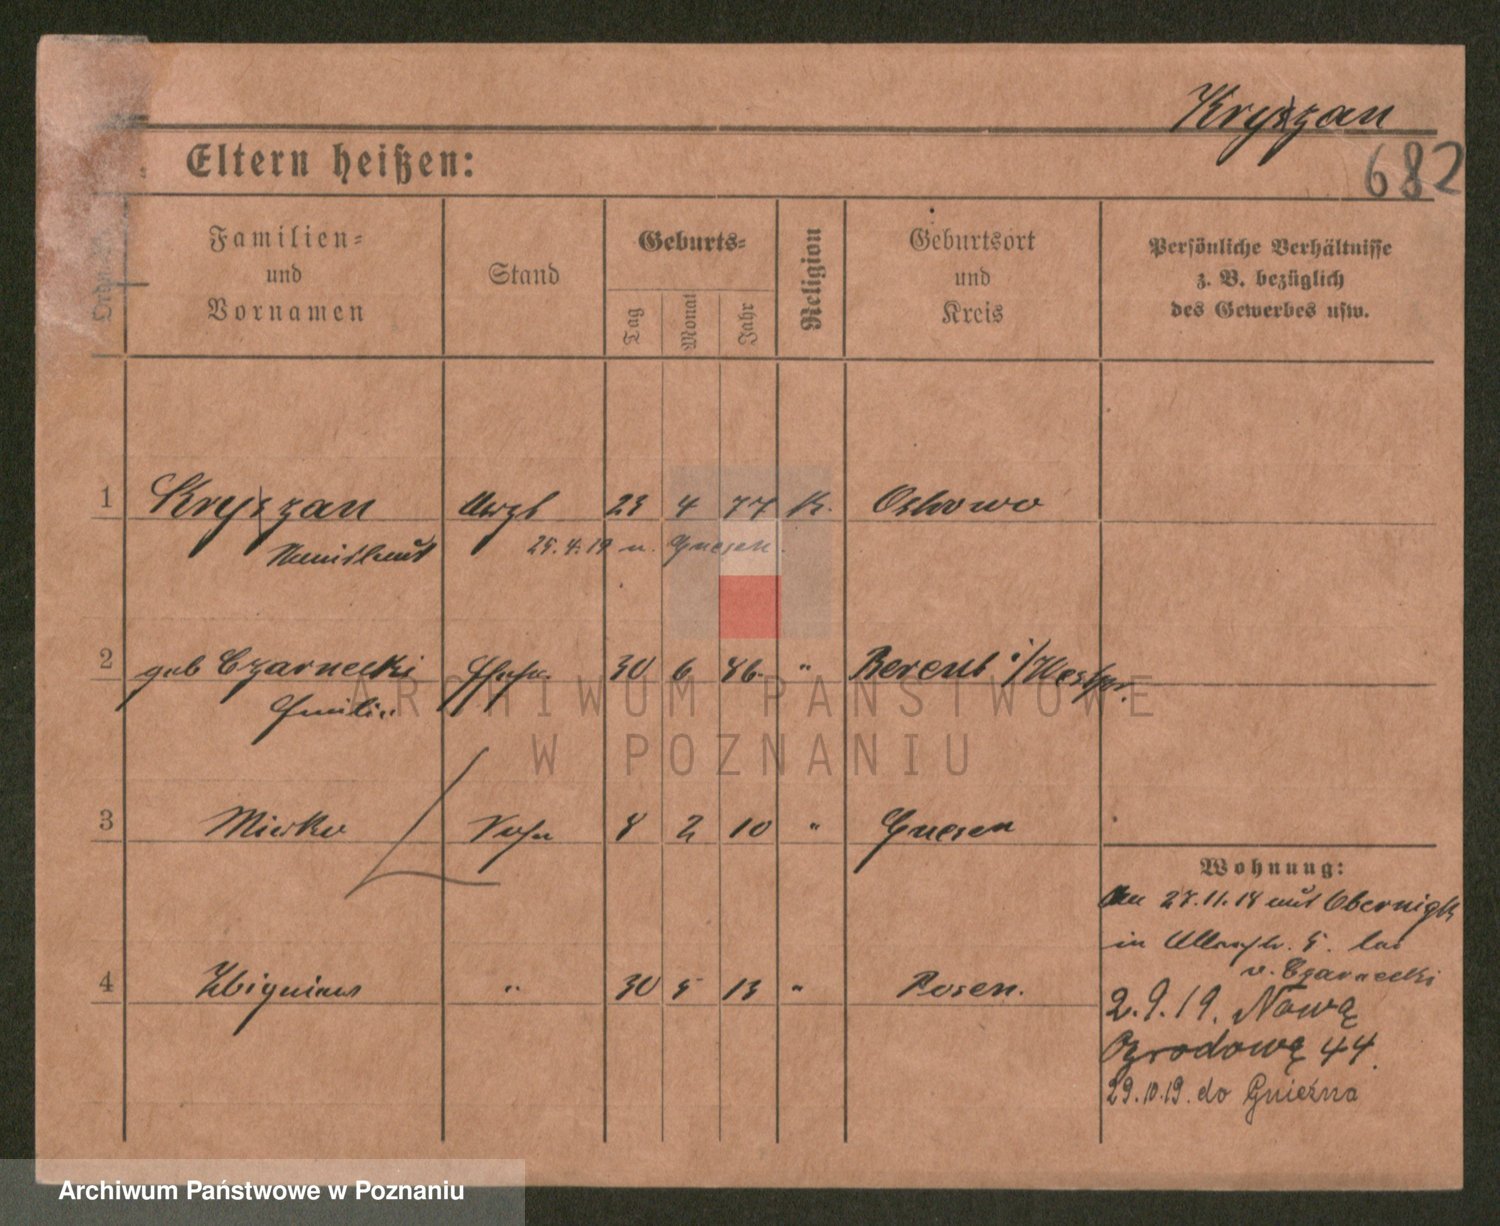 Kryszan
682
Eltern heißen:
Familien=
und
Vornamen
Stand
Geburts=
Tag
Monat
Jahr
Religion
Geburtsort
und
Kreis
Persönliche Verhältnisse
z. B. bezüglich
des Gewerbes usw.
1 Kryszan 23 4 77 K.
25.4.19 n. Gnesen.
2 geb Czarnecki Ehefr. 30 6 86 " Berent i/Westpr.
Emilie
3 Mirko Sohn 8 2 10 " Gnesen
Wohnung:
27.11.18 aus Obernigk
in 5. bei
v. Czarnecki
4 Zbigniew " 30 5 13 " Posen.
2.9.19. Nowa
Ogrodowa 44.
29.10.19. do Gniezna
ARCHIWUM PAŃSTWOWE
W POZNANIU
Archiwum Państwowe w Poznaniu